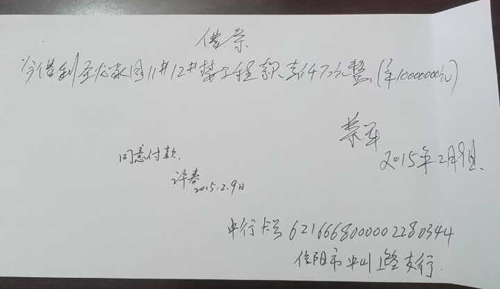 借条
今借到 家园11#12#楼工程款 整(¥1000000元)
2015年2月9日
同意付款
2015.2.9日
中行卡号 6216668000002280344
信阳市中山路支行